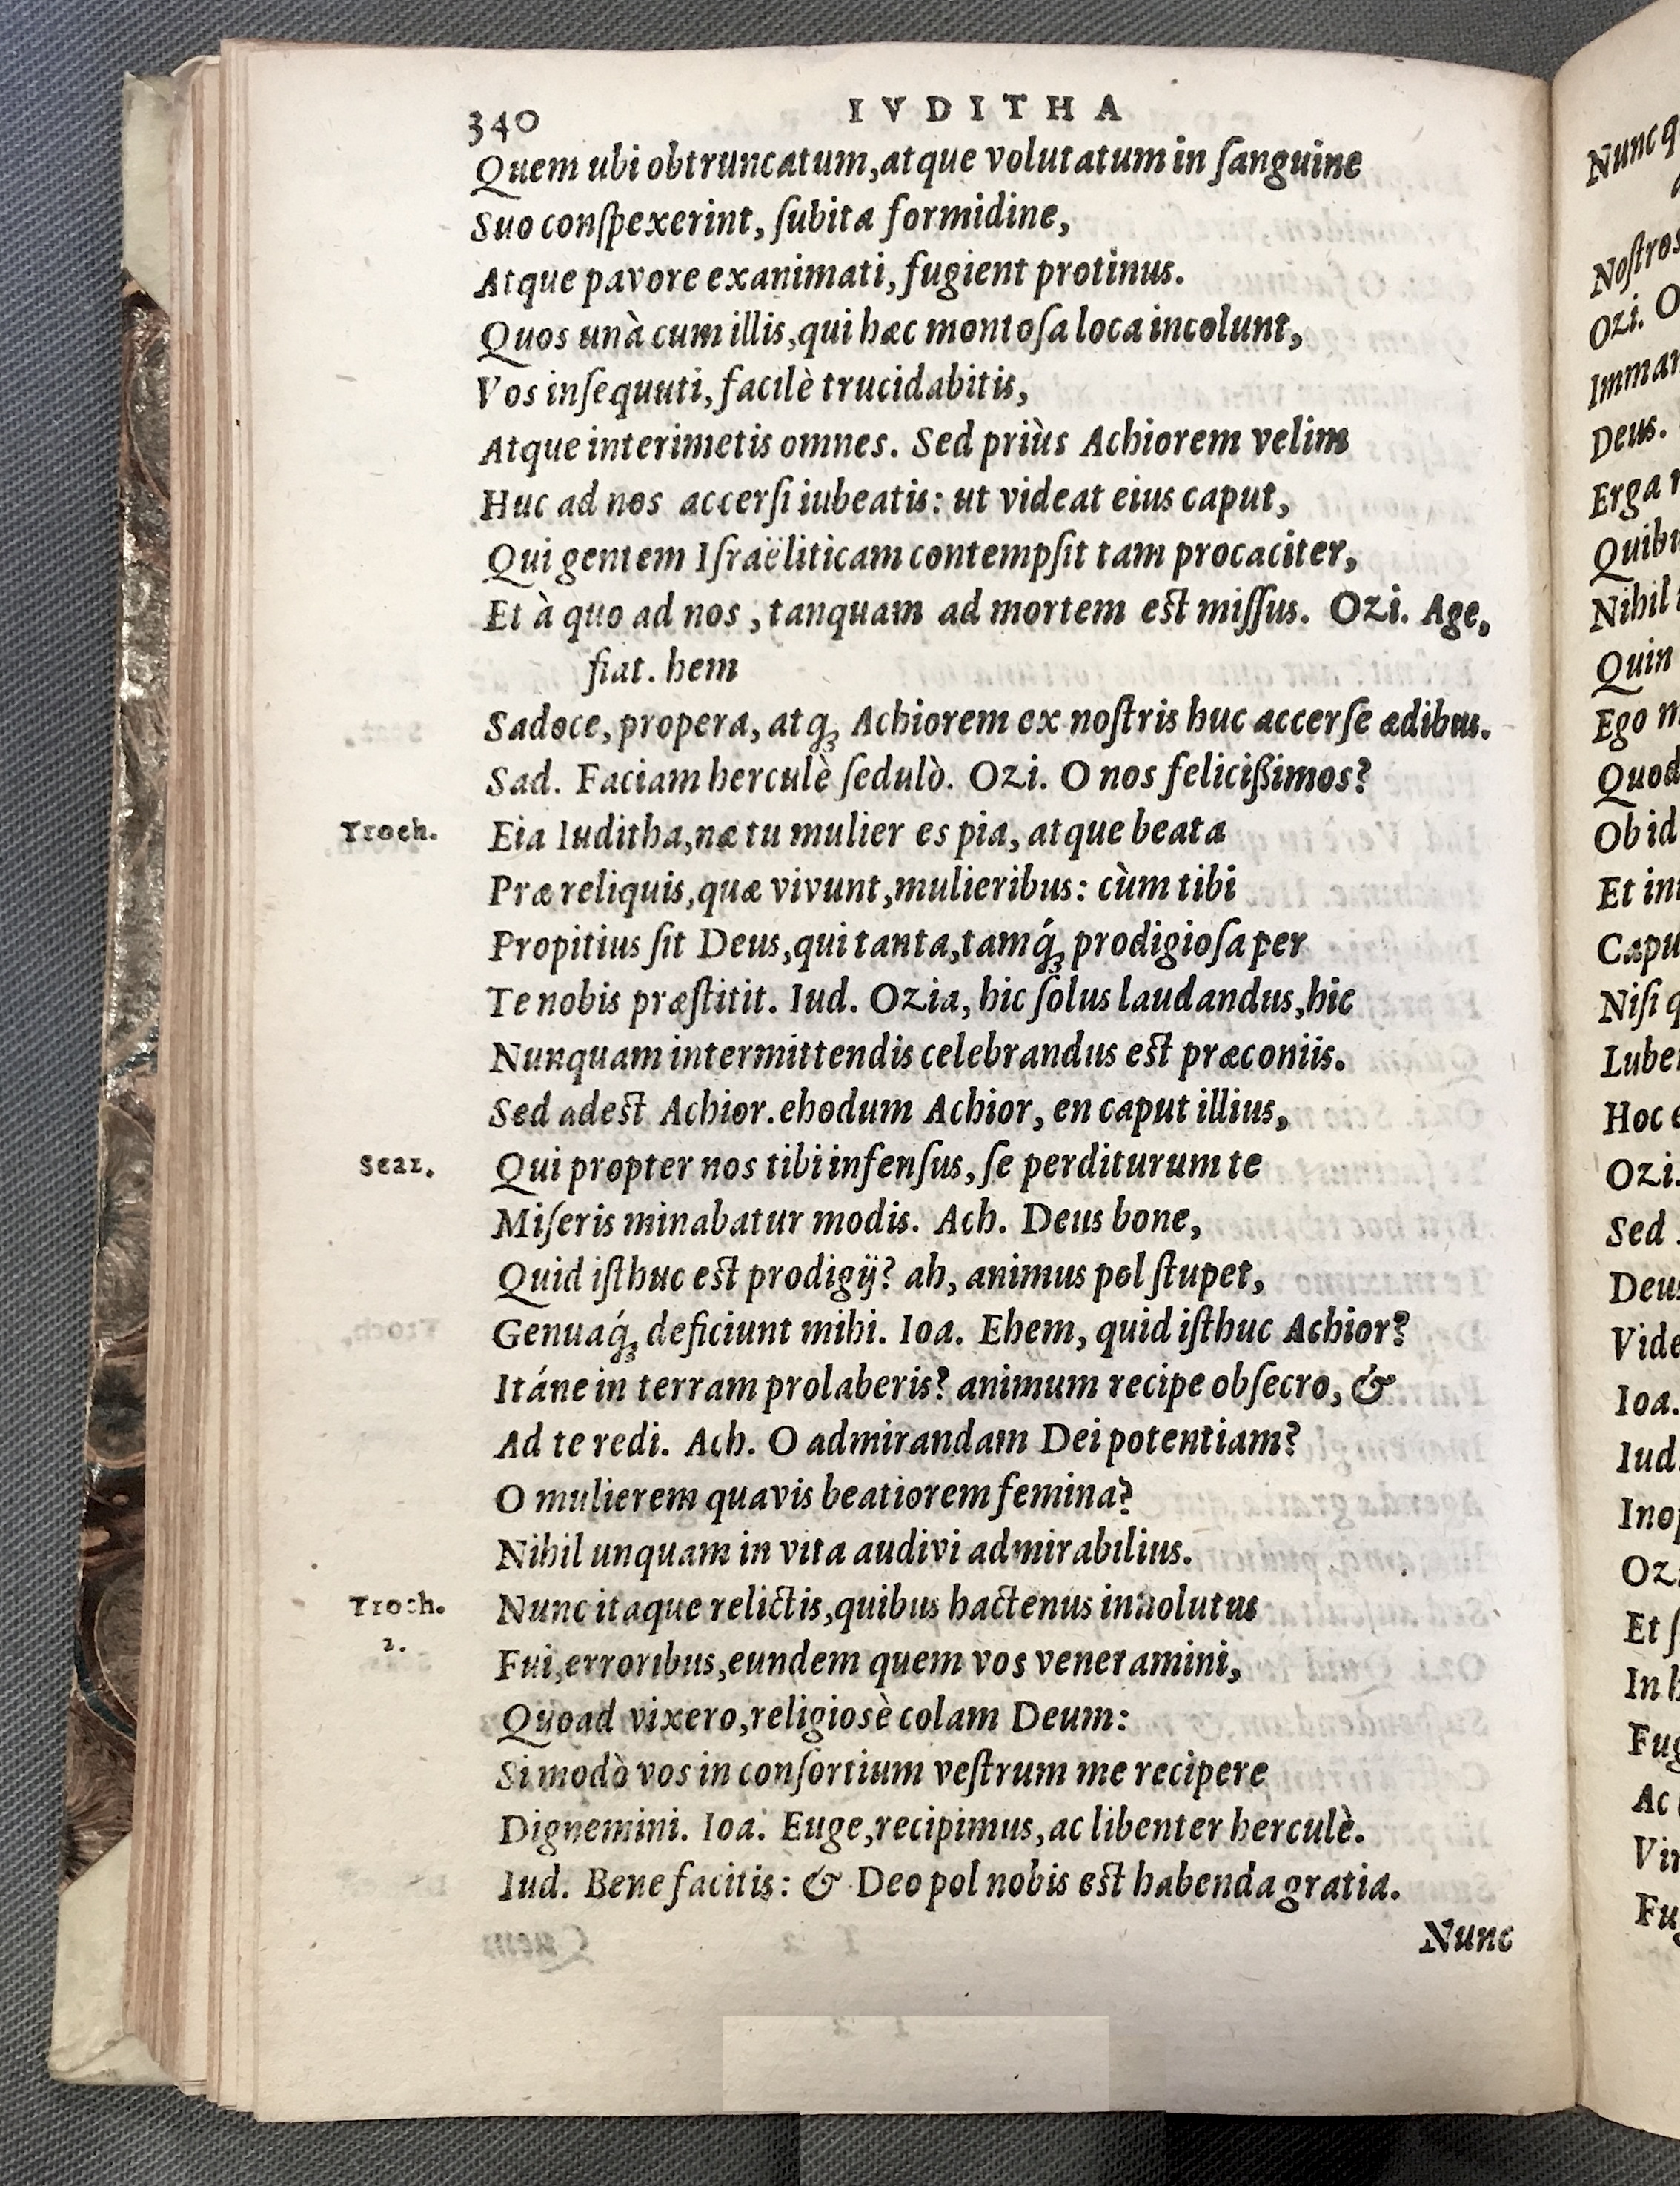 340 IVDITHA
Quem ubi obtruncatum, atque volutatum in ſanguine
Suo conſpexerint, ſubita formidine,
Atque pavore exanimati, fugient protinus.
Quos unà cum illis, qui hæc montoſa loca incolunt,
Vos inſequuti, facilè trucidabitis,
Atque interimetis omnes. Sed priùs Achiorem velim
Huc ad nos accerſi iubeatis: ut videat eius caput,
Qui gentem Iſraëliticam contempſit tam procaciter,
Et à quo ad nos, tanquam ad mortem eſt miſſus. Ozi. Age,
fiat. hem
Sadoce, propera, atq́ꝫ Achiorem ex noſtris huc accerſe ædibus.
Sad. Faciam herculè ſedulò. Ozi. O nos felicißimos?
Troch. Eia Iuditha, næ tu mulier es pia, atque beata
Præ reliquis, quæ vivunt, mulieribus: cùm tibi
Propitius ſit Deus, qui tanta, tamq́ꝫ prodigioſa per
Te nobis præſtitit. Iud. Ozia, hic ſolus laudandus, hic
Nunquam intermittendis celebrandus eſt præconiis.
Sed adeſt Achior. ehodum Achior, en caput illius,
Scaz. Qui propter nos tibi infenſus, ſe perditurum te
Miſeris minabatur modis. Ach. Deus bone,
Quid iſthuc eſt prodigij? ah, animus pol ſtupet,
Genuaq́ꝫ deficiunt mihi. Ioa. Ehem, quid iſthuc Achior?
Itáne in terram prolaberis? animum recipe obſecro, &
Ad te redi. Ach. O admirandam Dei potentiam?
O mulierem quavis beatiorem femina?
Nihil unquam in vita audivi admirabilius.
Troch. Nunc itaque relictis, quibus hactenus innolutus
2. Fui, erroribus, eundem quem vos veneramini,
Quoad vixero, religiosè colam Deum:
Si modò vos in conſortium veſtrum me recipere
Dignemini. Ioa. Euge, recipimus, ac libenter herculè.
Iud. Bene facitis: & Deo pol nobis eſt habenda gratia.
Nunc
Noſtros
Ozi. O
Deus.
Erga
Nihil
Quin
Ego
Quod
Ob id
Et
Niſi
Hoc
Ozi.
Sed
Ioa.
Iud.
Et
In
Ac